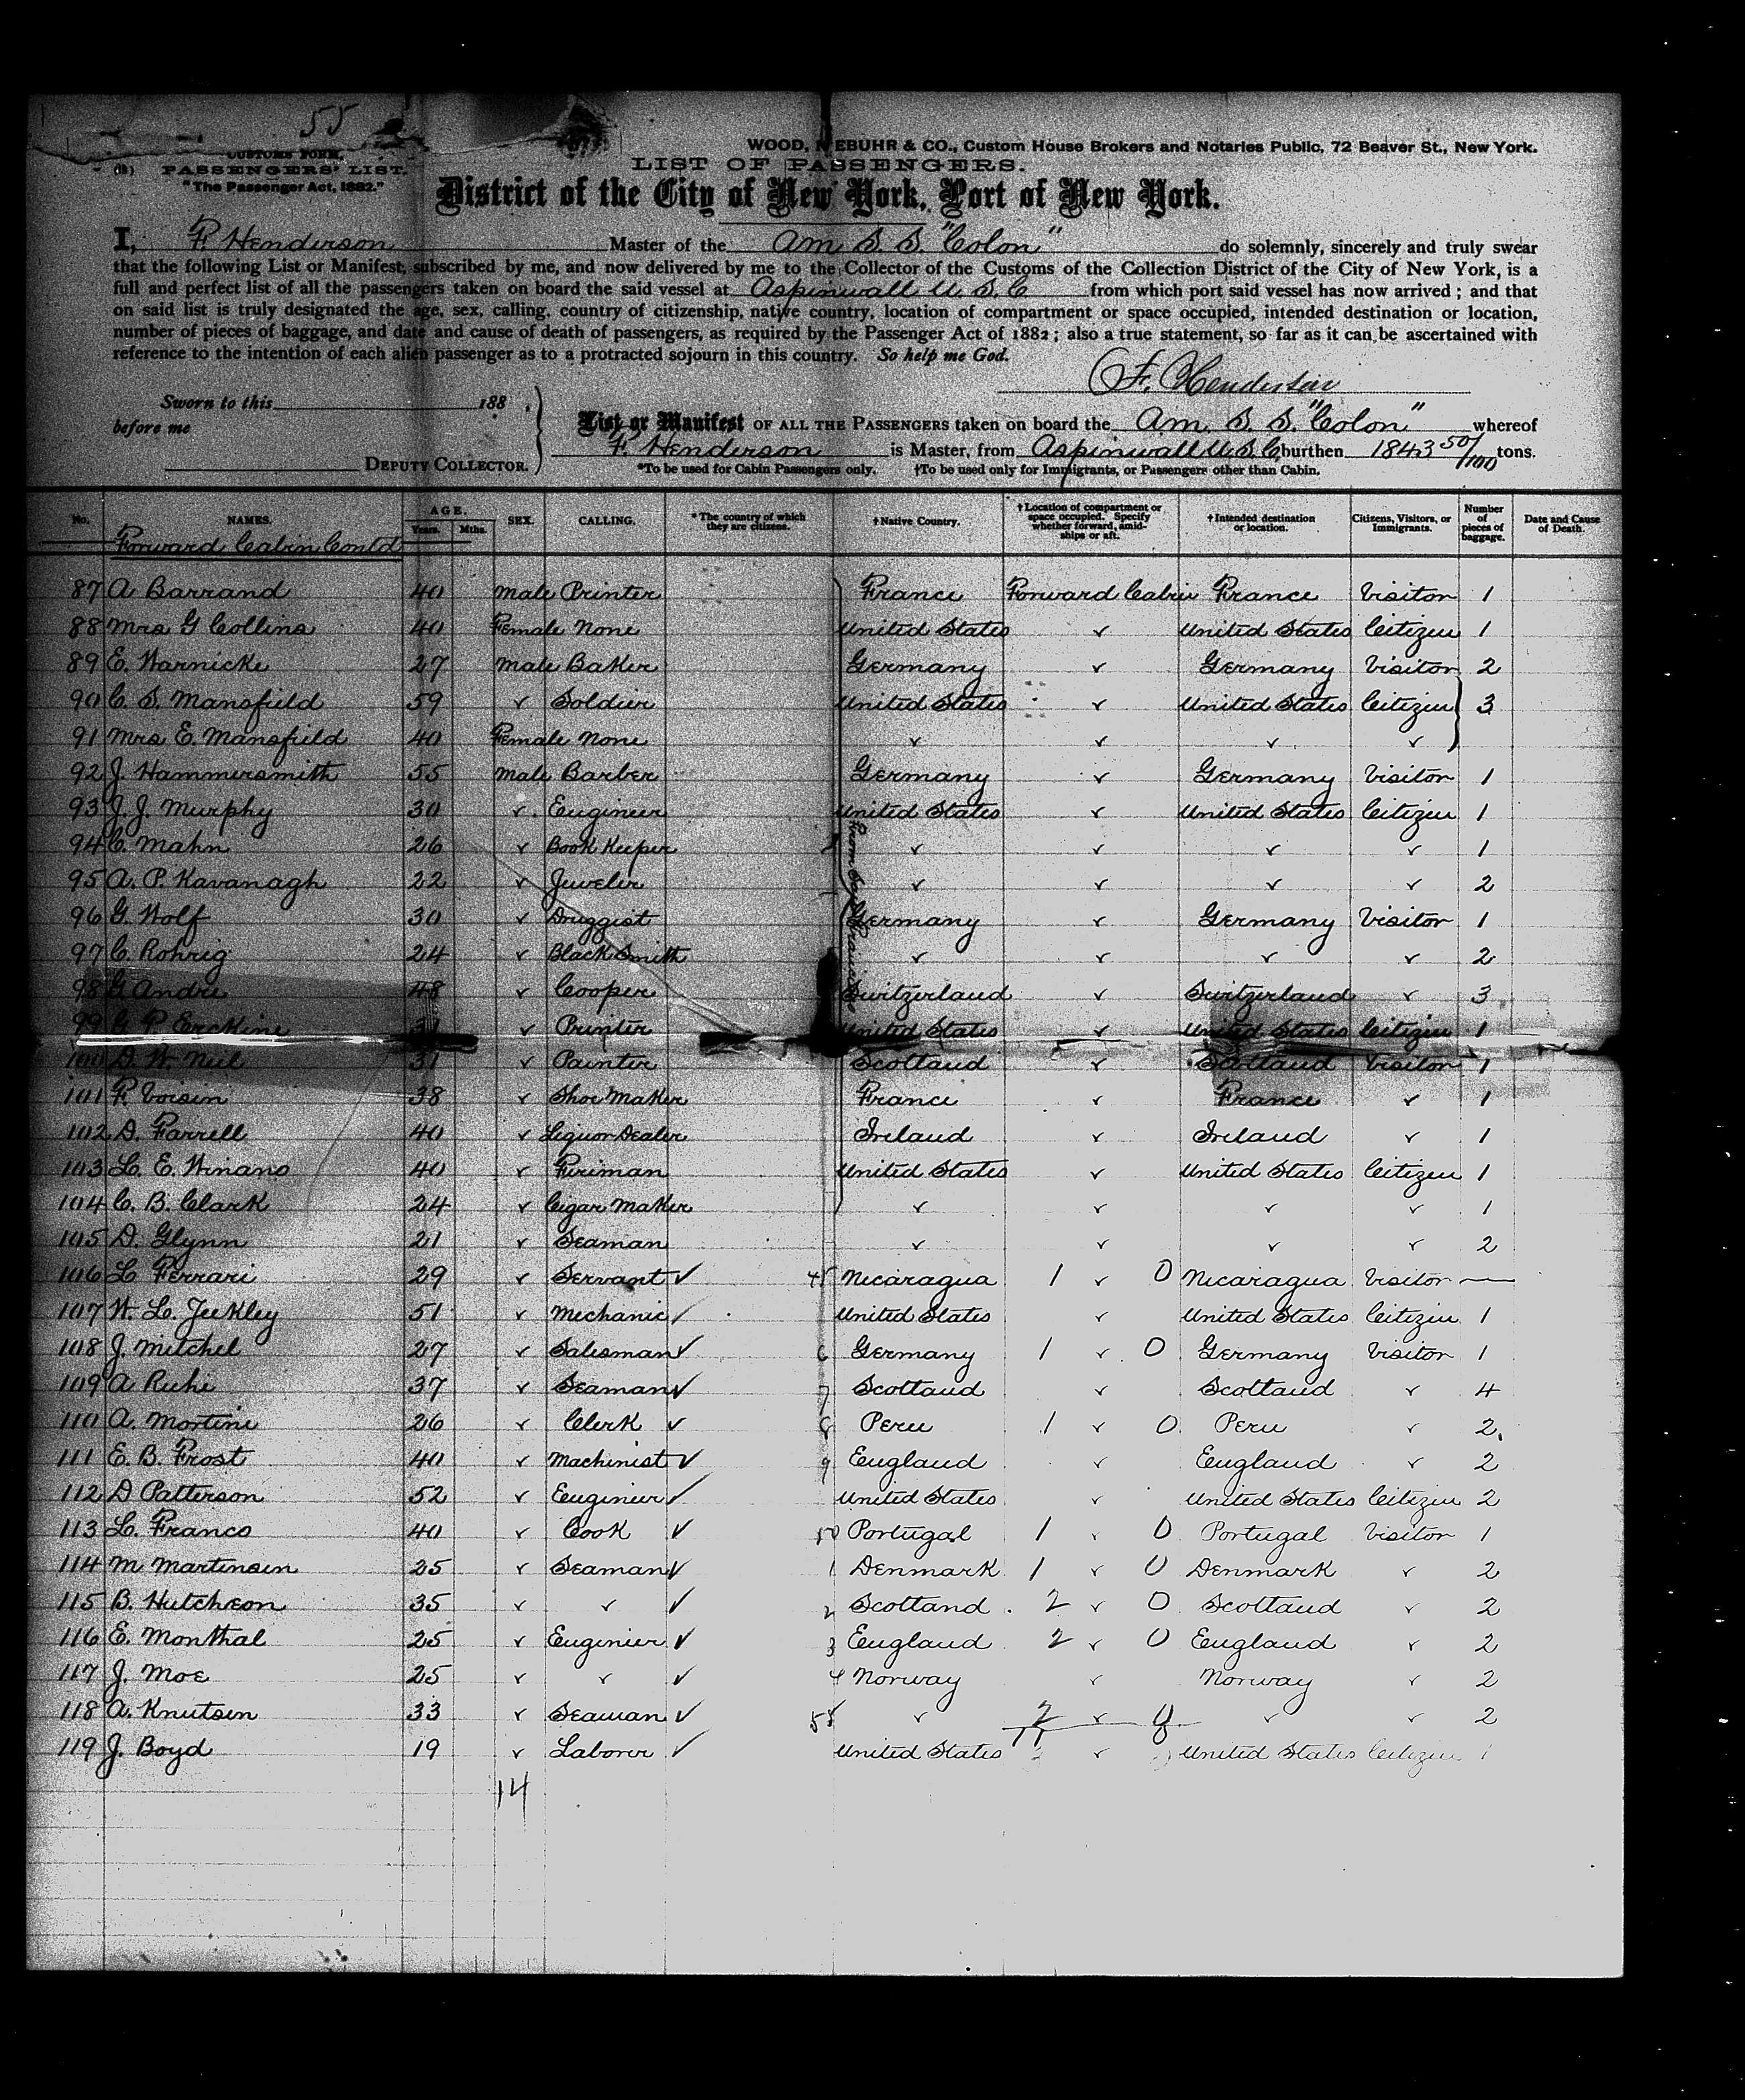 55
WOOD, NIEBUHR & CO., Custom House Brokers and Notaries Public, 72 Beaver St., New York.
CUSTOMS FORM.
PASSENGERS' LIST.
"The Passenger Act, 1882."
LIST OF PASSENGERS.
District of the City of New York, Port of New York.
I, F. Henderson Master of the Am S. S. "Colon" do solemnly, sincerely and truly swear
that the following List or Manifest, subscribed by me, and now delivered by me to the Collector of the Customs of the Collection District of the City of New York, is a
full and perfect list of all the passengers taken on board the said vessel at Aspinwall U. S. C from which port said vessel has now arrived; and that
on said list is truly designated the age, sex, calling, country of citizenship, native country, location of compartment or space occupied, intended destination or location,
number of pieces of baggage, and date and cause of death of passengers, as required by the Passenger Act of 1882; also a true statement, so far as it can be ascertained with
reference to the intention of each alien passenger as to a protracted sojourn in this country. So help me God.
F. Henderson
Sworn to this 188 .
before me
DEPUTY COLLECTOR.
List or Manifest OF ALL THE PASSENGERS taken on board the Am. S. S. "Colon" whereof
F. Henderson is Master, from Aspinwall U. S. C. burthen 1843 50/100 tons.
*To be used for Cabin Passengers only. †To be used only for Immigrants, or Passengers other than Cabin.
No. NAMES. AGE. Years. Mths. SEX. CALLING. *The country of which they are citizens. †Native Country. †Location of compartment or space occupied. Specify whether forward, amidships or aft. †Intended destination or location. Citizens, Visitors, or Immigrants. Number of pieces of baggage. Date and Cause of Death.
Forward Cabin Contd
87 A Barrand 40 Male Printer France Forward Cabin France Visitor 1
88 Mrs G Collins 40 Female None United States ✓ United States Citizen 1
89 E. Warnicke 27 Male Baker Germany ✓ Germany Visitor 2
90 C. S. Mansfield 59 ✓ Soldier United States ✓ United States Citizen 3
91 Mrs E. Mansfield 40 Female None ✓ ✓ ✓ ✓
92 J. Hammersmith 55 Male Barber Germany ✓ Germany Visitor 1
93 J. J. Murphy 30 ✓ Engineer United States ✓ United States Citizen 1
94 C. Mahn 26 ✓ Book Keeper ✓ ✓ ✓ ✓ 1
95 A. P. Kavanagh 22 ✓ Jeweler ✓ ✓ ✓ ✓ 2
96 G. Wolf 30 ✓ Druggist Germany ✓ Germany Visitor 1
97 C. Rohrig 24 ✓ Black Smith ✓ ✓ ✓ ✓ 2
98 G Andre 48 ✓ Cooper Switzerland ✓ Switzerland ✓ 3
99 G. P. Erckine 31 ✓ Printer United States ✓ United States Citizen 1
100 D. W. Neil 31 ✓ Painter Scotland ✓ Scotland Visitor 1
101 F. Voisin 38 ✓ Shoe Maker France ✓ France ✓ 1
102 D. Farrell 40 ✓ Liquor Dealer Ireland ✓ Ireland ✓ 1
103 L. E. Winans 40 ✓ Fireman United States ✓ United States Citizen 1
104 C. B. Clark 24 ✓ Cigar Maker ✓ ✓ ✓ ✓ 1
105 D. Glynn 21 ✓ Seaman ✓ ✓ ✓ ✓ 2
106 L Ferrari 29 ✓ Servant ✓ 45 Nicaragua 1 ✓ 0 Nicaragua Visitor —
107 W. L. Jeckley 51 ✓ Mechanic ✓ United States ✓ United States Citizen 1
108 J. Mitchel 27 ✓ Salesman ✓ 6 Germany 1 ✓ 0 Germany Visitor 1
109 A Ruhe 37 ✓ Seaman ✓ 7 Scotland ✓ Scotland ✓ 4
110 A. Mortine 26 ✓ Clerk ✓ 8 Peru 1 ✓ 0 Peru ✓ 2
111 E. B. Frost 40 ✓ Machinist ✓ 9 England ✓ England ✓ 2
112 D Patterson 52 ✓ Engineer ✓ United States ✓ United States Citizen 2
113 L. Franco 40 ✓ Cook ✓ 50 Portugal 1 ✓ 0 Portugal Visitor 1
114 M Martinsen 25 ✓ Seaman ✓ 1 Denmark 1 ✓ 0 Denmark ✓ 2
115 B. Hutcheon 35 ✓ ✓ ✓ 2 Scotland 2 ✓ 0 Scotland ✓ 2
116 E. Monthal 25 ✓ Engineer ✓ 3 England 2 ✓ 0 England ✓ 2
117 J. Moe 25 ✓ ✓ ✓ 4 Norway ✓ Norway ✓ 2
118 A. Knutsen 33 ✓ Seaman ✓ 55 ✓ 2 ✓ 0 ✓ ✓ 2
119 J. Boyd 19 ✓ Laborer ✓ United States 11 ✓ 0 United States Citizen 1
14